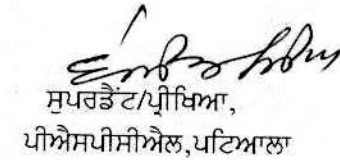 ਸੁਪਰਡੈਂਟ/ਪ੍ਰੀਖਿਆ,
ਪੀਐਸਪੀਸੀਐਲ,ਪਟਿਆਲਾ